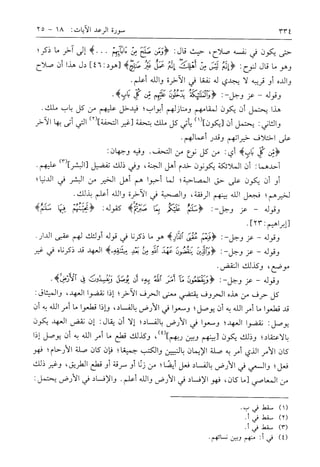 ٣٣٤ سورة الرعد الآيات: ١٨ - ٢٥
حتى يكون في نفسه صلاح، حيث قال: ﴿وَمَن صَلَحَ مِنْ ءَابَآئِهِمْ . . .﴾ إلى آخر ما ذكر؛
وهو ما قال لنوح: ﴿إِنَّهُۥ لَيْسَ مِنْ أَهْلِكَ إِنَّهُۥ عَمَلٌ غَيْرُ صَٰلِحٍ﴾ [هود: ٤٦] دل هذا أن صلاح
والده أو قريبه لا يجدي له نفعا في الآخرة والله أعلم.
وقوله - عز وجل-: ﴿وَٱلْمَلَٰٓئِكَةُ يَدْخُلُونَ عَلَيْهِم مِّن كُلِّ بَابٍ﴾.
هذا يحتمل أن يكون لمقامهم ومنازلهم أبواب؛ فيدخل عليهم من كل باب ملك.
والثاني: يحتمل أن [يكون](١) يأتي كل ملك بتحفة [غير التحفة](٢) التي أتى بها الآخر
على اختلاف خيراتهم وقدر أعمالهم.
﴿مِّن كُلِّ بَابٍ﴾ أي: من كل نوع من التحف. وفيه وجهان:
أحدهما: أن الملائكة يكونون خدم أهل الجنة، وفي ذلك تفضيل [البشر](٣) عليهم.
أو أن يكون على حق المصاحبة؛ لما أحبوا هم أهل الخير من البشر في الدنيا؛
لخيرهم؛ فجعل الله بينهم الرفقة، والصحبة في الآخرة والله أعلم بذلك.
وقوله - عز وجل-: ﴿سَلَٰمٌ عَلَيْكُم بِمَا صَبَرْتُمْ﴾ كقوله: ﴿تَحِيَّتُهُمْ فِيهَا سَلَٰمٌ﴾
[إبراهيم: ٢٣].
وقوله - عز وجل-: ﴿فَنِعْمَ عُقْبَى ٱلدَّارِ﴾ هو ما ذكرنا في قوله أولئك لهم عقبى الدار.
وقوله - عز وجل-: ﴿وَٱلَّذِينَ يَنقُضُونَ عَهْدَ ٱللَّهِ مِنۢ بَعْدِ مِيثَٰقِهِۦ﴾ العهد قد ذكرناه في غير
موضع، وكذلك النقض.
وقوله - عز وجل-: ﴿وَيَقْطَعُونَ مَآ أَمَرَ ٱللَّهُ بِهِۦٓ أَن يُوصَلَ وَيُفْسِدُونَ فِى ٱلْأَرْضِ﴾.
كل حرف من هذه الحروف يقتضي معنى الحرف الآخر؛ إذا نقضوا العهد، والميثاق:
قد قطعوا ما أمر الله به أن يوصل؛ وسعوا في الأرض بالفساد، وإذا قطعوا ما أمر الله به أن
يوصل: نقضوا العهد؛ وسعوا في الأرض بالفساد؛ إلا أن يقال: إن نقض العهد يكون
بالاعتقاد؛ وذلك يكون [بينهم وبين ربهم](٤)، وكذلك قطع ما أمر الله به أن يوصل إذا
كان الأمر الذي أمر به صلة الإيمان بالنبيين والكتب جميعا؛ فإن كان صلة الأرحام؛ فهو
فعل؛ والسعي في الأرض بالفساد فعل أيضًا؛ من زنًا أو سرقة أو قطع الطريق، وغير ذلك
من المعاصي [ما كان، فهو الإفساد في الأرض والله أعلم. والإفساد في الأرض يحتمل:
(١) سقط في ب.
(٢) سقط في أ.
(٣) سقط في أ.
(٤) في أ: منهم وبين نسائهم.